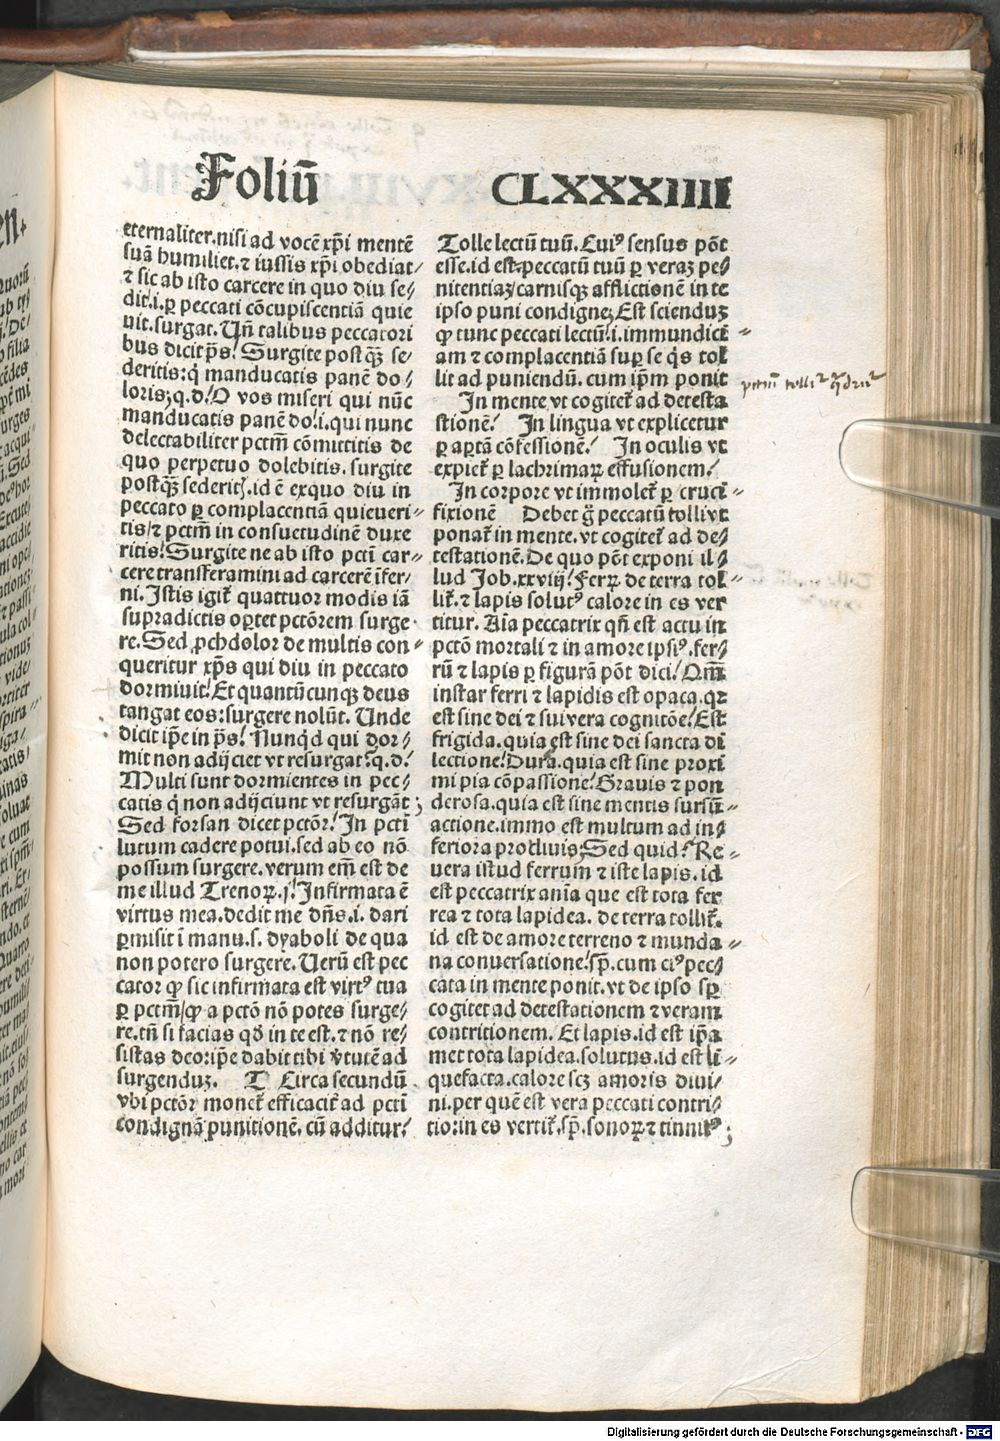 Foliū CLXXXIIII
eternaliter.nisi ad vocē xp̄i mentē
suā humiliet.⁊ iussis xp̄i obediat⸗
⁊ sic ab isto carcere in quo diu se/
dit.i.ꝑ peccati cōcupiscentiā quie
uit.surgat. Un̄ talibus peccatori
bus dicit p̄s! Surgite postqꝫ se/
deritis:q̄ manducatis panē do/
loris;q.d.O vos miseri qui nūc
manducatis panē do!.i.qui nunc
delectabiliter pctm̄ cōmittitis de
quo perpetuo dolebitis. surgite
postqꝫ sederitꝭ.id ē exquo diu in
peccato ꝑ complacentiā quieueri⸗
tis/⁊ pctm̄ in consuetudinē duxe
ritis! Surgite ne ab isto pcti car⸗
cere transferamini ad carcerē īfer/
ni. Istis igit̄ quattuor modis iā
supradictis oꝑtet pctōrem surge⸗
re. Sed ꝓchdolor de multis con⸗
queritur xp̄s qui diu in peccato
dormiuit! Et quantūcunqꝫ deus
tangat eos:surgere nolūt. Unde
dicit ip̄e in p̄s! Nunqd qui dor/
mit non adijciet vt resurgat?q.d.
Multi sunt dormientes in pec/
catis q̄ non adijciunt vt resurgāt;
Sed forsan dicet pctōr! In pcti
lutum cadere potui.sed ab eo nō
possum surgere. verum em̄ est de
me illud Trenoꝝ.j! Infirmata ē
virtus mea.dedit me dn̄s.i. dari
ꝑmisit ī manu.s. dyaboli de qua
non potero surgere. Uerū est pec
cator ꝙ sic infirmata est virtꝰ tua
ꝑ pctm̄/ꝙ a pctō nō potes surge/
re.tn̄ si facias qd in te est.⁊ nō re/
sistas deo:ip̄e dabit tibi v̄tutē ad
surgenduꝫ. Circa secundū
vbi pctōr monet̄ efficacit̄ ad pcti
condignā punitionē. cū additur/
Tolle lectū tuū. Cuiꝰ sensus pōt
esse.id est.peccatū tuū ꝑ veraꝫ pe/
nitentiaꝫ/carnisqꝫ afflictionē in te
ipso puni condigne; Est scienduꝫ
ꝙ tunc peccati lectū!.i.immundici⸗
am ⁊ complacentiā suꝑ se q̄s tol
lit ad puniendū. cum ip̄m ponit
In mente vt cogitet̄ ad detesta
tionē! In lingua vt explicetur
ꝑ aꝑtā cōfessionē! In oculis vt
expiet̄ ꝑ lachrimaꝝ effusionem!
In corpore vt immolet̄ ꝑ cruci⸗
fixionē Debet g̊ peccatū tolli vt
ponat̄ in mente. vt cogitet̄ ad de/
testationē. De quo pōt exponi il/
lud Job.xxviij! Ferꝝ de terra tol⸗
lit̄.⁊ lapis solutꝰ calore in es ver
titur. Aīa peccatrix qn̄ est actu in
pctō mortali ⁊ in amore ipsiꝰ.fer/
rū ⁊ lapis ꝑ figurā pōt dici!
instar ferri ⁊ lapidis est opaca.qꝛ
est sine dei ⁊ sui vera cognitōe! Est
frigida.quia est sine dei sancta di
lectione! Dura.quia est sine proxi
mi pia cōpassione! Grauis ⁊ pon
derosa.quia est sine mentis sursū⸗
actione.immo est multum ad in/
feriora procliuis; Sed quid? Re⸗
uera istud ferrum ⁊ iste lapis.id
est peccatrix anīa que est tota fer
rea ⁊ tota lapidea. de terra tollit̄.
id est de amore terreno ⁊ munda⸗
na conuersatione! sp̄. cum ciꝰ pec/
cata in mente ponit.vt de ipso sp̄
cogitet ad detestationem ⁊ veram
contritionem. Et lapis.id est ip̄a
met tota lapidea.solutus.id est li⸗
quefacta.calore scꝫ amoris diui/
ni.per quē est vera peccati contri/
tio:in es vertit̄.sp̄.sonoꝝ ⁊ tinnitꝰ;
Digitalisierung gefördert durch die Deutsche Forschungsgemeinschaft - DFG